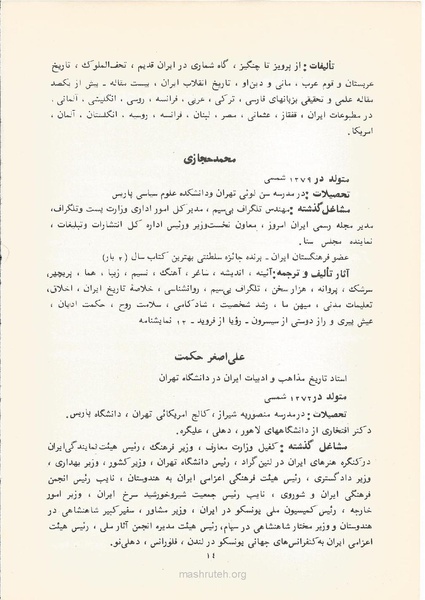 تألیفات : از پرویز تا چنگیز ، گاه شماری در ایران قدیم ، تحف‌الملوک ، تاریخ
عربستان و قوم عرب ، مانی و دین‌او ، تاریخ انقلاب ایران ، بیست مقاله ـ بیش از یکصد
مقاله علمی و تحقیقی بزبانهای فارسی ، ترکی ، عربی ، فرانسه ، روسی ، انگلیسی ، آلمانی ،
در مطبوعات ایران ، قفقاز ، عثمانی ، مصر ، لبنان ، فرانسه ، روسیه ، انگلستان ، آلمان ،
امریکا .
محمد حجازی
متولد در ۱۲۷۹ شمسی
تحصیلات : در مدرسه سن لوئی تهران ودانشکده علوم سیاسی پاریس
مشاغل گذشته : مهندس تلگراف بی‌سیم ، مدیر کل امور اداری وزارت پست وتلگراف،
مدیر مجله رسمی ایران امروز ، معاون نخست‌وزیر ورئیس اداره کل انتشارات و تبلیغات ،
نماینده مجلس سنا .
عضو فرهنگستان ایران - برنده جائزه سلطنتی بهترین کتاب سال (۲ بار)
آثار تألیف و ترجمه : آئینه ، اندیشه ، ساغر ، آهنگ ، نسیم ، زیبا ، هما ، پریچهر،
سرشک ، پروانه ، هزار سخن ، تلگراف بی‌سیم ، روانشناسی ، خلاصهٔ تاریخ ایران ، اخلاق،
تعلیمات مدنی ، میهن ما ، رشد شخصیت ، شادکامی ، سلامت روح ، حکمت ادیان ،
عیش پیری و راز دوستی از سیسرون - رؤیا از فروید - ۱۲ نمایشنامه
علی‌اصغر حکمت
استاد تاریخ مذاهب و ادبیات ایران در دانشگاه تهران
متولد در ۱۲۷۲ شمسی
تحصیلات : در مدرسه منصوریه شیراز ، کالج امریکائی تهران ، دانشگاه پاریس.
دکتر افتخاری از دانشگاههای لاهور ، دهلی ، علیگره .
مشاغل گذشته : کفیل وزارت معارف ، وزیر فرهنگ ، رئیس هیئت نمایندگی ایران
در کنگره هنرهای ایران در لنین گراد ، رئیس دانشگاه تهران ، وزیر کشور ، وزیر بهداری ،
وزیر دادگستری ، رئیس هیئت فرهنگی اعزامی ایران به هندوستان ، نایب رئیس انجمن
فرهنگی ایران و شوروی ، نایب رئیس جمعیت شیروخورشید سرخ ایران ، وزیر امور
خارجه ، رئیس کمیسیون ملی یونسکو در ایران ، وزیر مشاور ، سفیر کبیر شاهنشاهی در
هندوستان و وزیر مختار شاهنشاهی در سیام، رئیس هیئت مدیره انجمن آثار ملی ، رئیس هیئت
اعزامی ایران به کنفرانس‌های جهانی یونسکو در لندن ، فلورانس ، دهلی‌نو.
۱۴
mashruteh.org